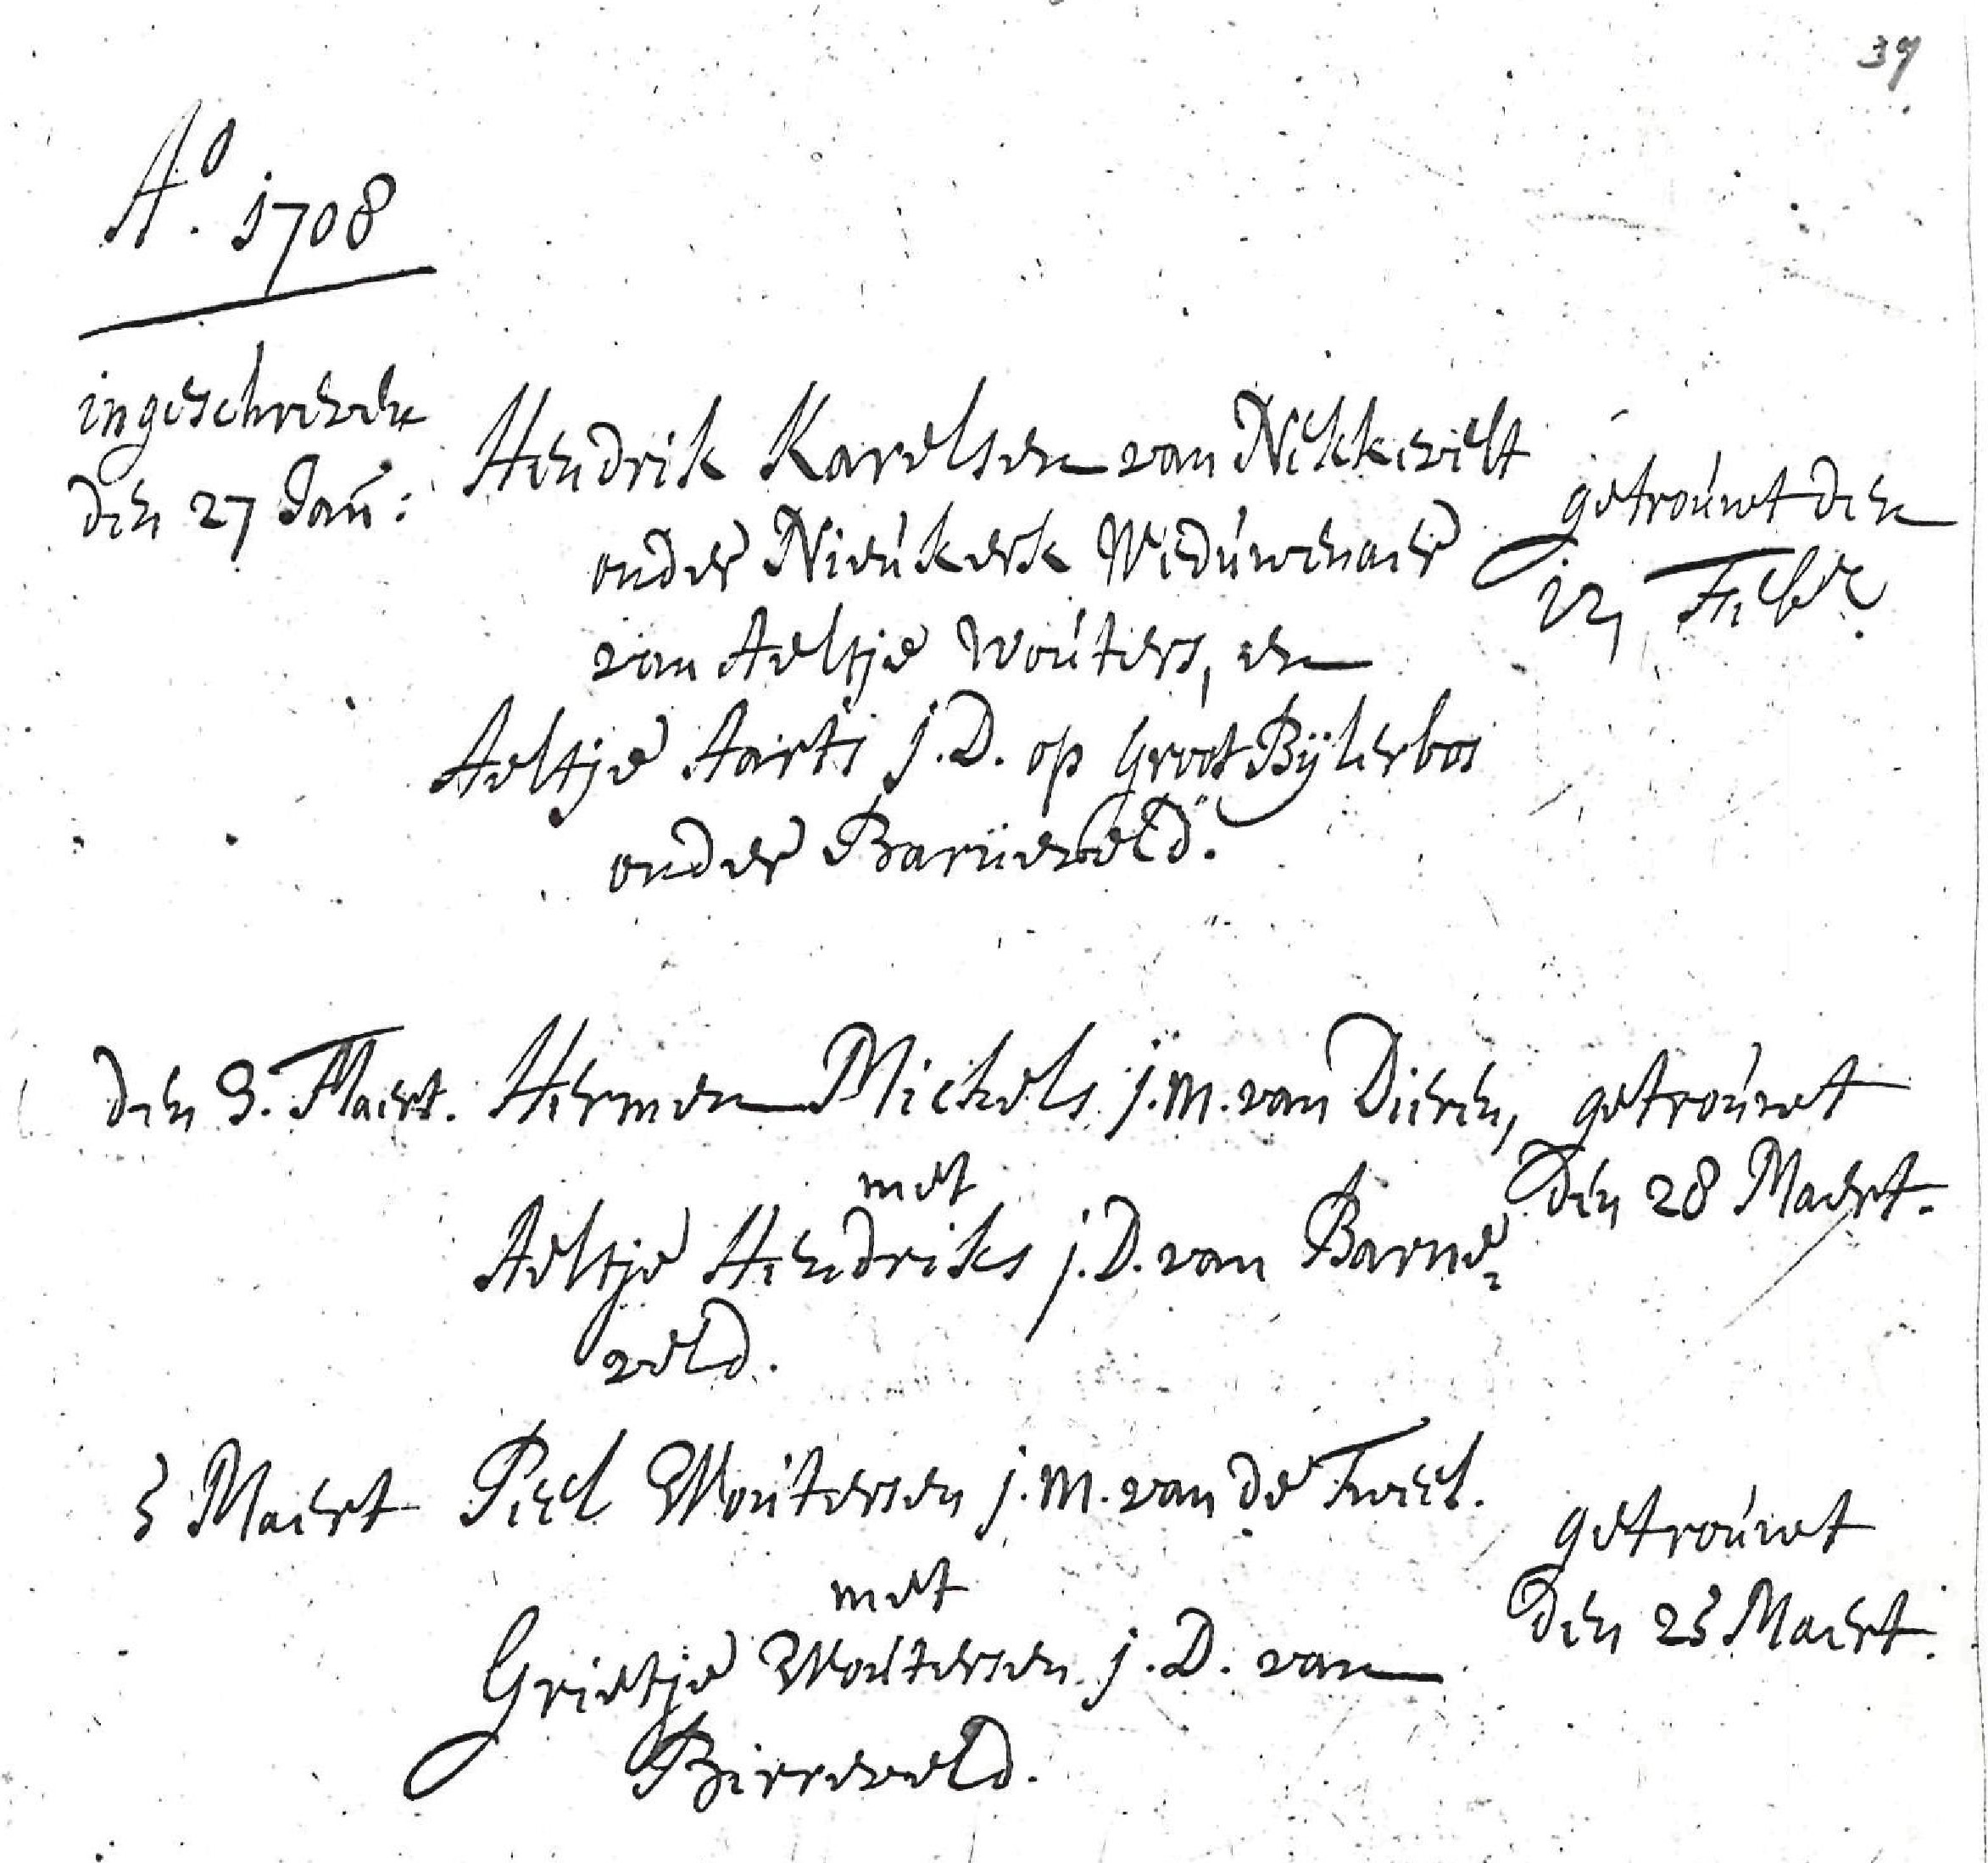 39
Ao. 1708
ingeschreven
den 27 Jan:
Hendrik Karelsen van Nekkevelt
onder Nieúkerk Wedúwenaer
van Aeltje Woúters, en
Aeltje Aarts j.D. op Groot Bÿlerbos
onder Barneveld.
getroúwt den
Febr.
den 3. Maert.
Hermen Michels j.M. van Dieren,
met
Aeltje Hendriks j.D. van Barne=
veld.
getroúwt
den 28 Maert.
3 Maert
Peel Woútersen j.M. van de
met
Grietje Woútersen j.D. van
Barneveld.
getroúwt
den 25 Maert.